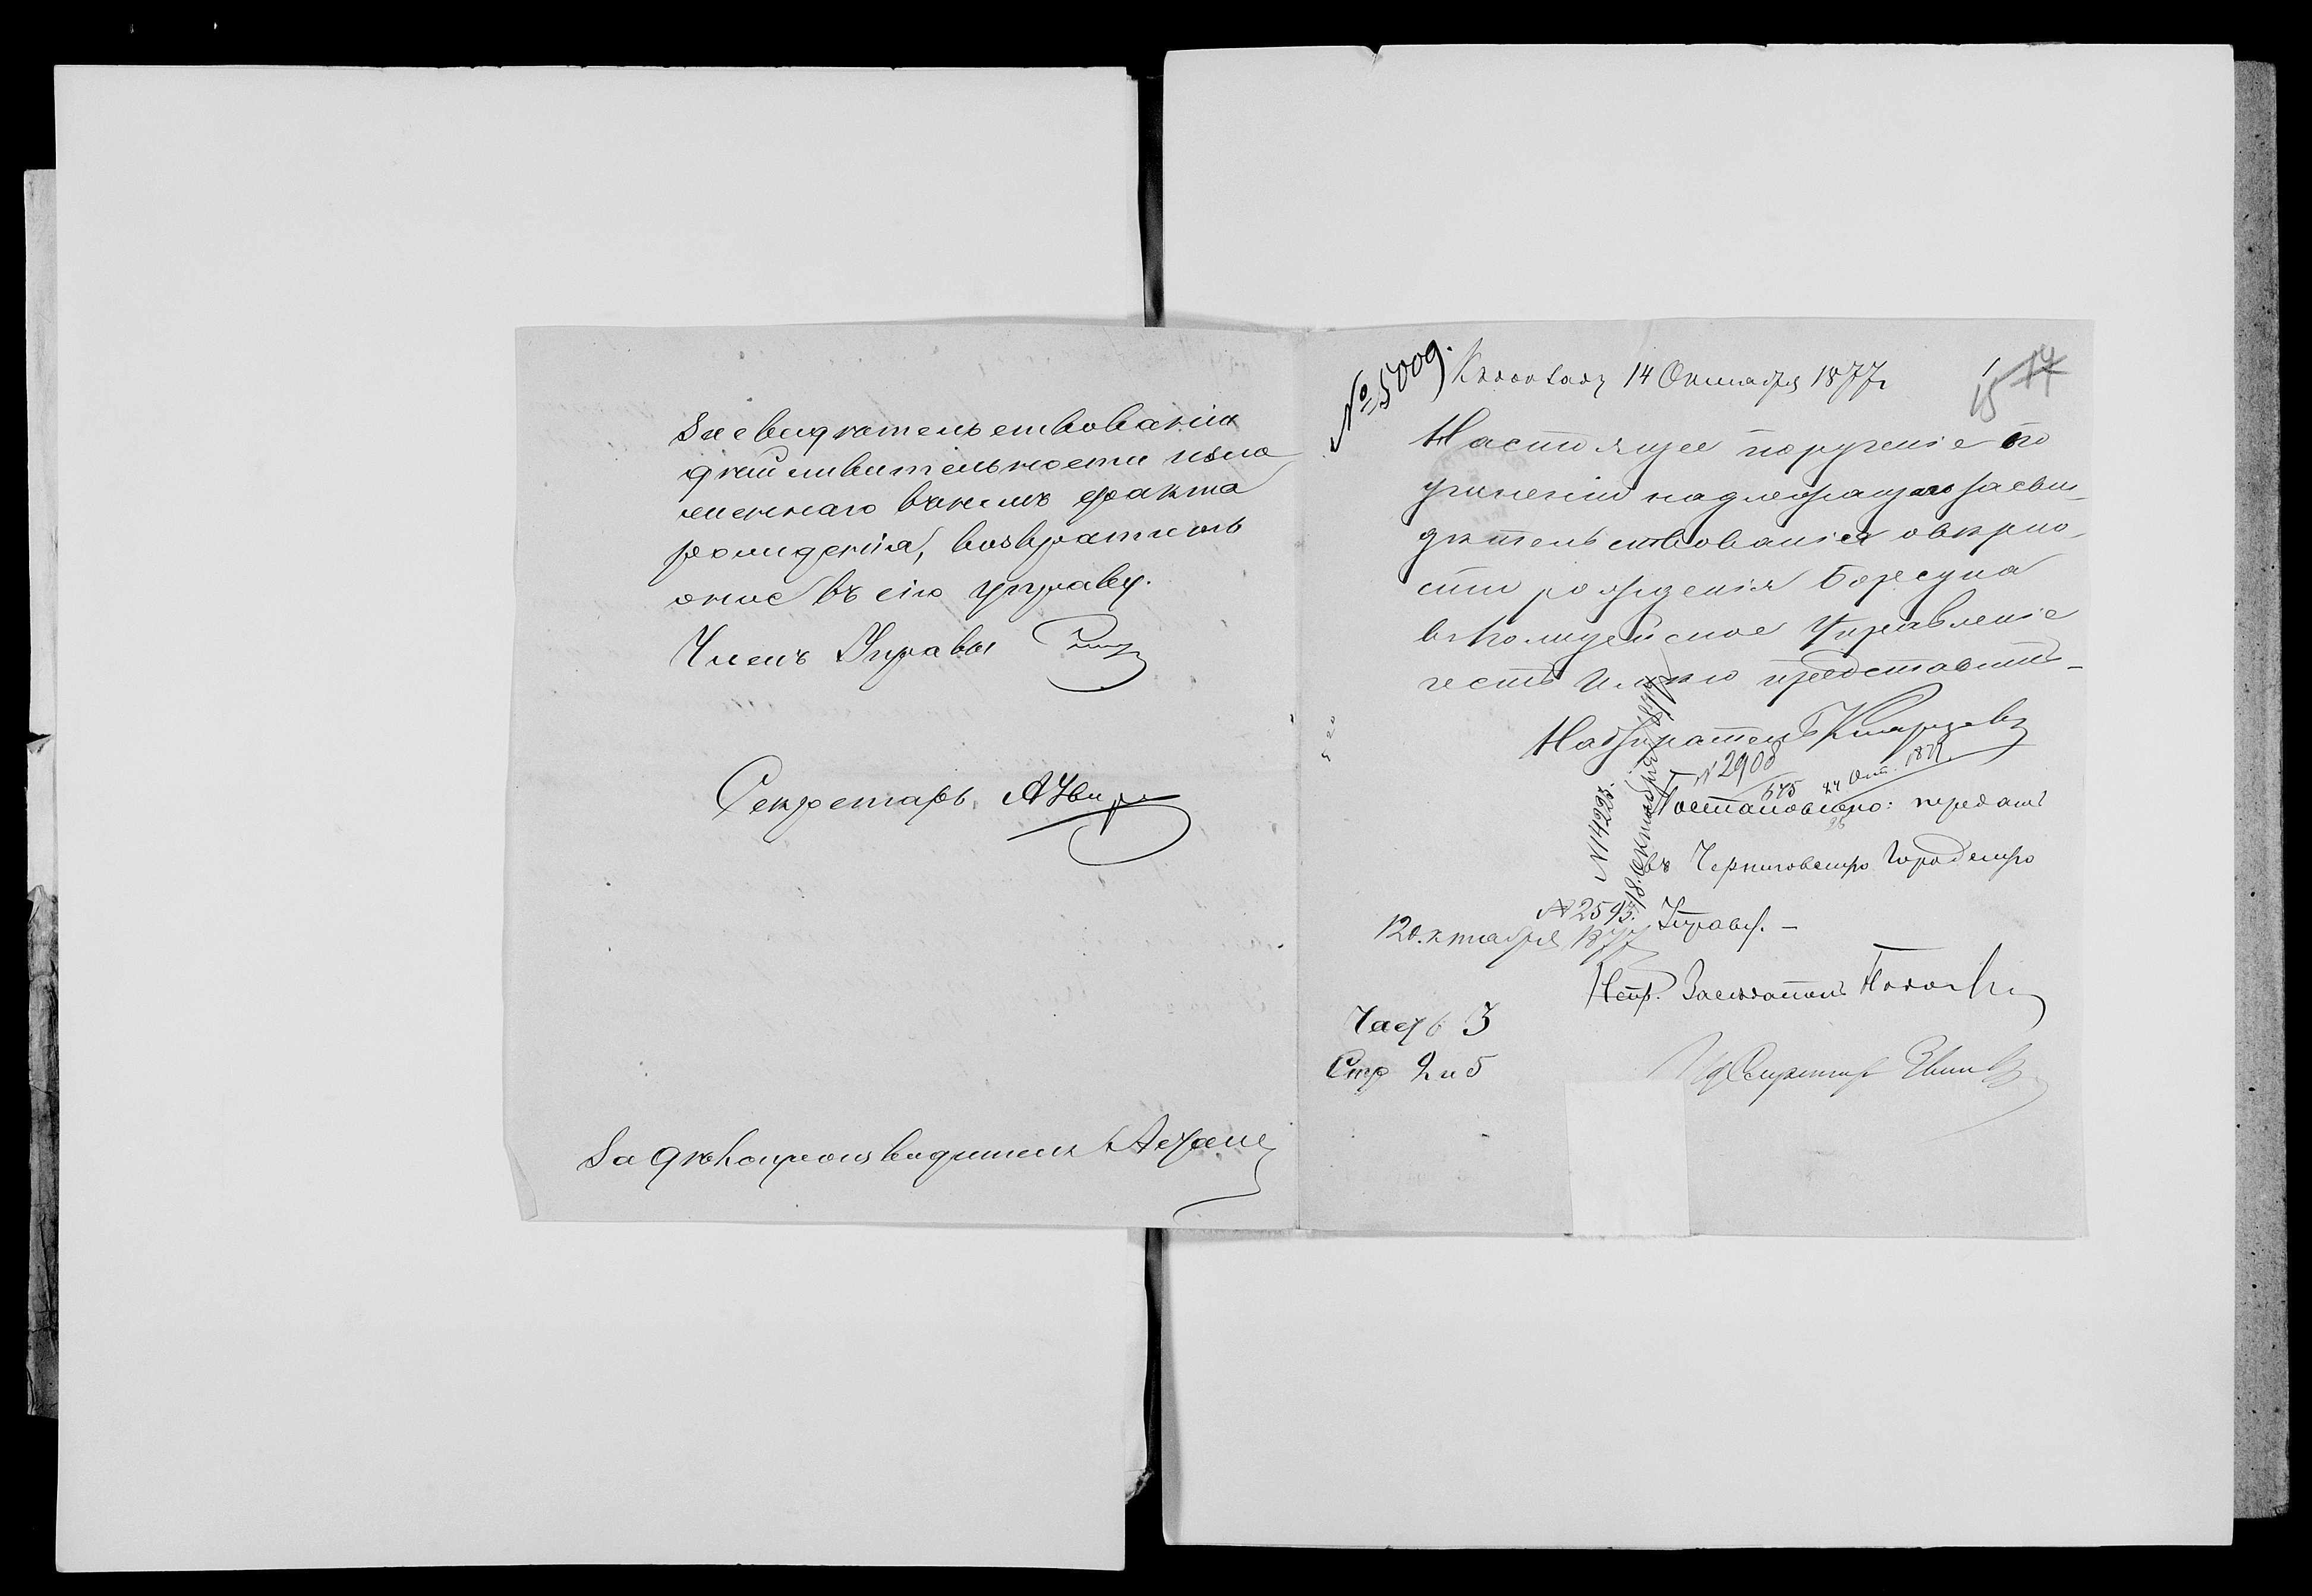 Засвидѣтельствованія
дѣйствительности изло
женнаго въ немъ факта
рожденія, возвратить
оное въ сію управу.
Членъ Управы
Секретарь
За дѣлопроизводителя
№ 5009.
14 Октября 1877г
15 14
Настоящее порученіе по
учиненіи надлежащаго засви-
дѣтельствованія о вѣрно-
сти рожденія Борсука
въ Полицейское Управленіе
честь имѣю представить-
Надзиратель
№ 2908
675 24 Окт. 1877.
Постановлено: передать
въ Черниговскую Городскую
Управу. -
№ 14223.
18 Октября 1877
№ 2593.
12 Октября 1877
Часть 3
Стр 2 и 5
Исп. Засѣдатель
Секретарь